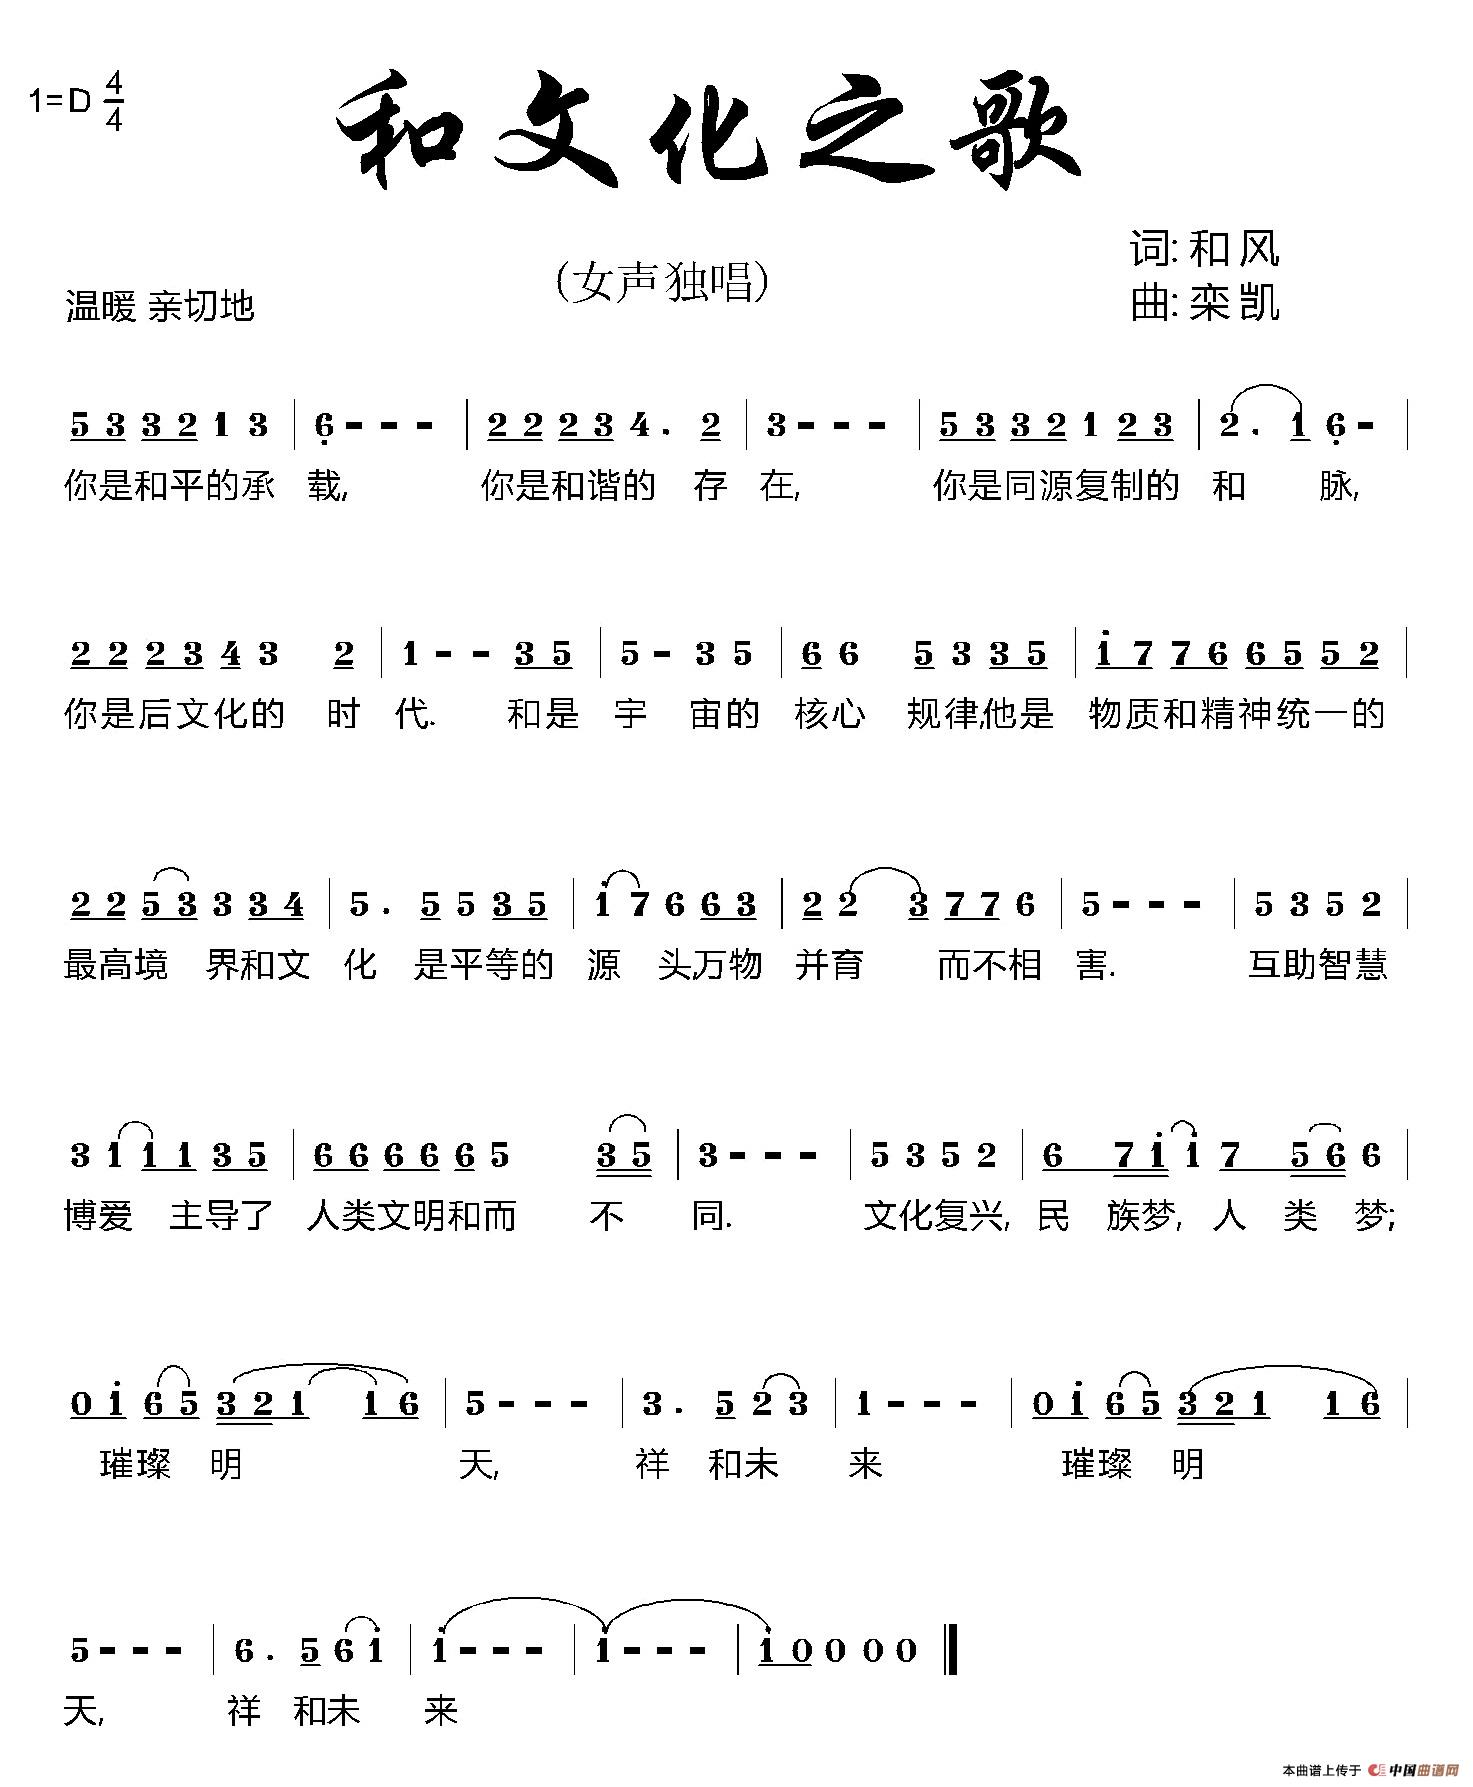 1=D 4/4
和文化之歌
(女声独唱)
词: 和 风
温暖 亲切地
曲: 栾 凯
5 3 3 2 1 3 | 6 - - - | 2 2 2 3 4 . 2 | 3 - - - | 5 3 3 2 1 2 3 | 2 . 1 6 - |
你是和平的承 载, 你是和谐的 存 在, 你是同源复制的 和 脉,
2 2 2 3 4 3 2 | 1 - - 3 5 | 5 - 3 5 | 6 6 5 3 3 5 | 1 7 7 6 6 5 5 2 |
你是后文化的 时 代. 和是 宇 宙的 核心 规律,他是 物质和精神统一的
2 2 5 3 3 3 4 | 5 . 5 5 3 5 | 1 7 6 6 3 | 2 2 3 7 7 6 | 5 - - - | 5 3 5 2 |
最高境 界和文 化 是平等的 源 头,万物 并育 而不相 害. 互助智慧
3 1 1 1 3 5 | 6 6 6 6 6 5 3 5 | 3 - - - | 5 3 5 2 | 6 7 1 1 7 5 6 6 |
博爱 主导了 人类文明和而 不 同. 文化复兴, 民 族梦, 人 类 梦;
0 1 6 5 3 2 1 1 6 | 5 - - - | 3 . 5 2 3 | 1 - - - | 0 1 6 5 3 2 1 1 6 |
璀璨 明 天, 祥 和未 来 璀璨 明
5 - - - | 6 . 5 6 1 | 1 - - - | 1 - - - | 1 0 0 0 0 ‖
天, 祥 和未 来
本曲谱上传于 中国曲谱网